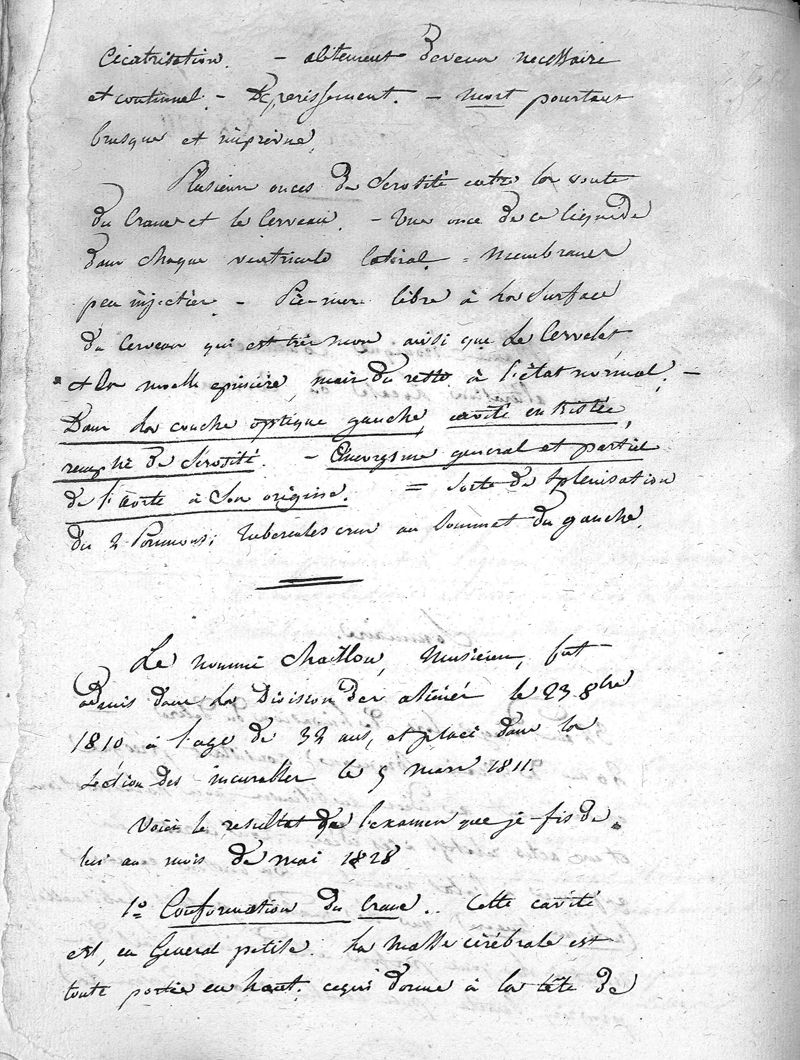 Cicatrisation. - alitement devenu necessaire
et continuel. - Deperissement. - mort pourtant
brusque et imprévue.
Plusieurs onces de Serosité entre la voute
du Crane et le Cerveau. - Une once de ce liquide
dans chaque ventricule latéral. = Membranes
peu injectées - Pie-mere libre à la Surface
du Cerveau qui est très mou, ainsi que le Cervelet
et la moelle epiniere, mais du reste à l'état normal. -
Dans la couche optique gauche, cavité enkistée,
remplie de Serosité. - Anevrysme general et partiel
de l'Aorte à Son origine. = Sorte de Splenisation
des 2 Poumons; Tubercules crus au Sommet du gauche.
Le nommé Chaillou, Musicien, fut
admis dans la Division des aliénés le 23 8bre
1810 à l'age de 32 ans, et placé dans la
Section des incurables le 5 mars 1811.
Voici le resultat de l'examen que je fis de
lui au mois de mai 1828
1º Conformation du Crane.. Cette cavité
est, en General petite. La Masse cérébrale est
toute portée en haut, ce qui donne à la tête de